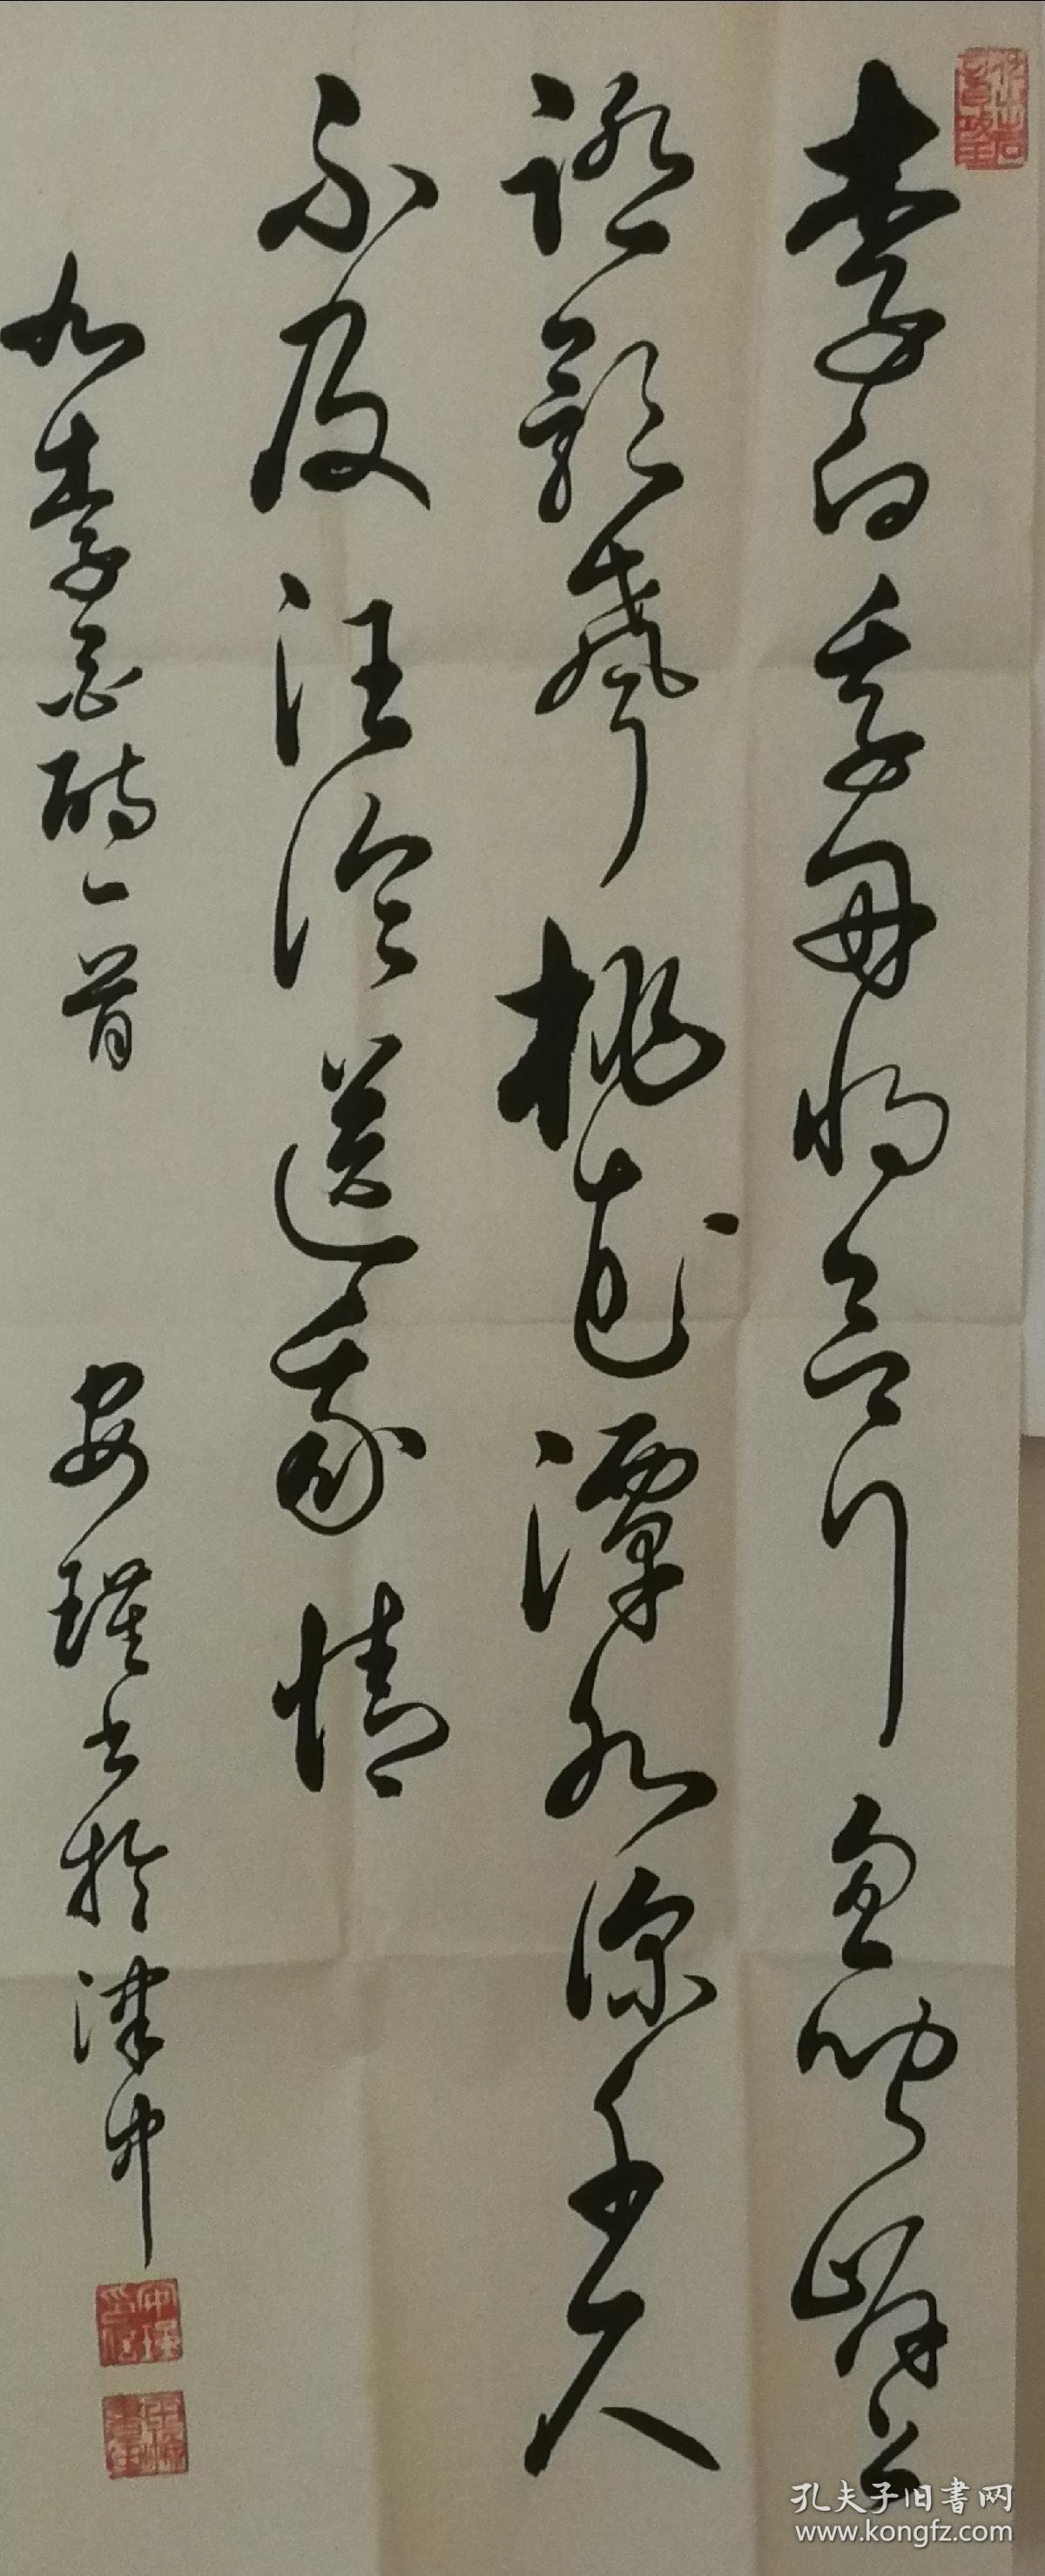 李白乘舟將欲行忽聞岸上
踏歌聲桃花潭水深千尺
不及汪倫送我情
李白詩一首
安瑾书於津中
孔夫子旧書网
www.kongfz.com